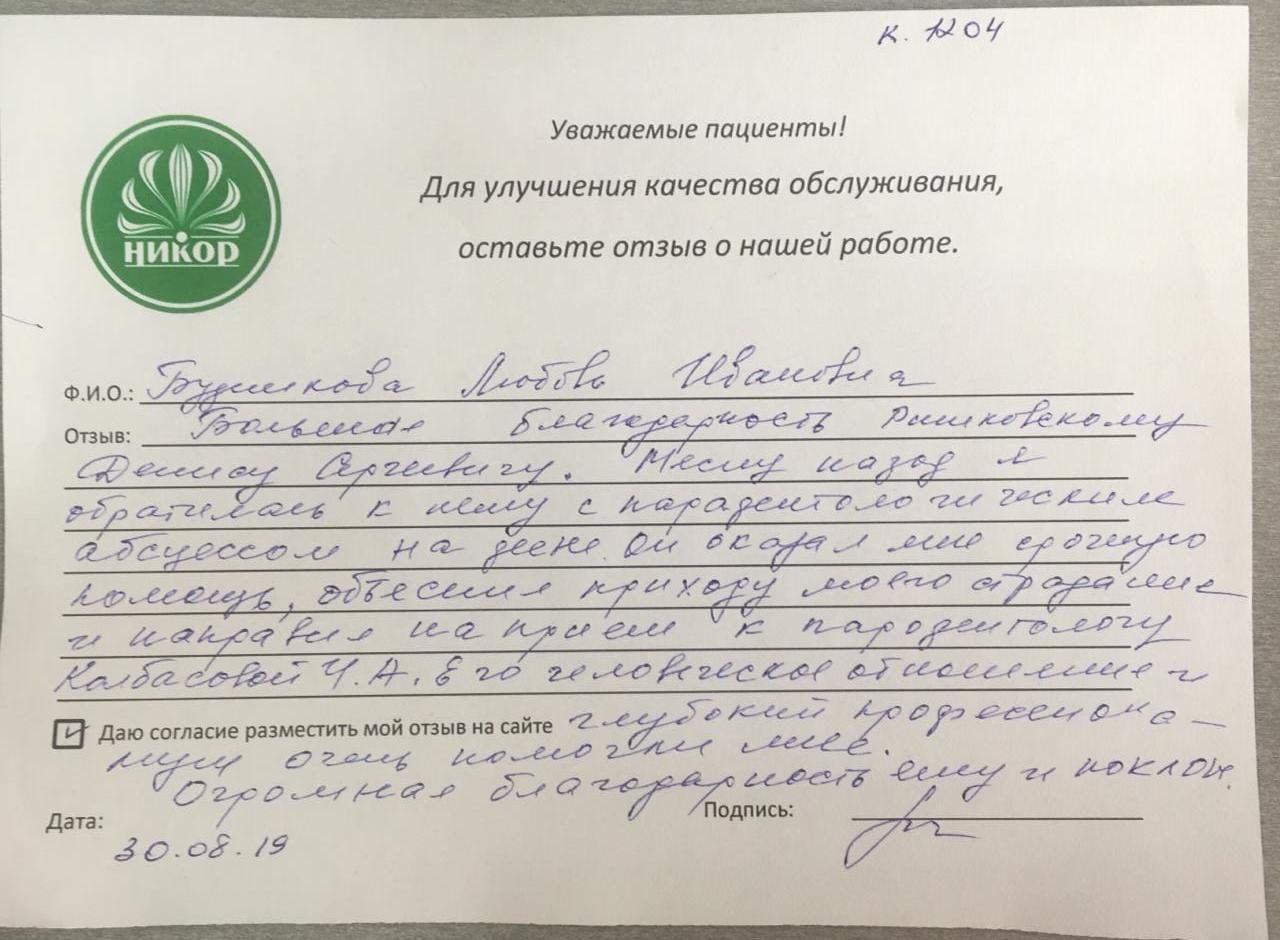 к. 1204
Уважаемые пациенты!
Для улучшения качества обслуживания,
оставьте отзыв о нашей работе.
НИКОР
Ф.И.О.: Любовь Ивановна
Отзыв: Большая благодарность
Денису Сергеевичу. Месяц назад я
обратилась к нему с парадентологическим
абсцессом на десне. Он оказал мне срочную
помощь, объеснил приходу моего страдание
и направил на прием к пародентологу
Колбасовой Ч.А. Его человеческое отношение и
Даю согласие разместить мой отзыв на сайте глубокий профессиона-
лизм очень помогли мне.
Огромная благодарность ему и поклон.
Подпись:
Дата:
30.08.19